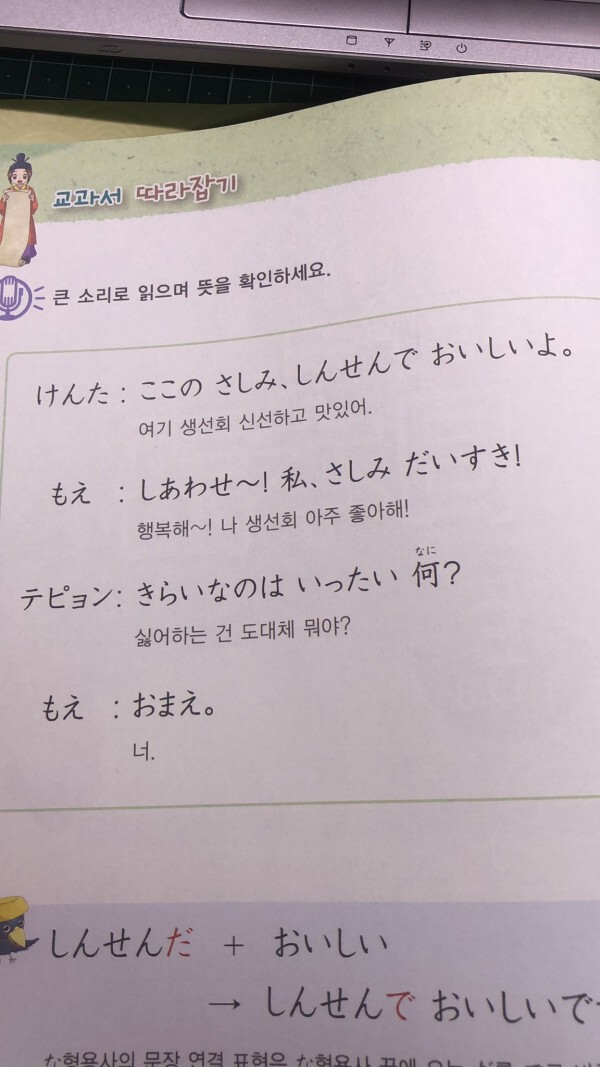 교과서 따라잡기
큰 소리로 읽으며 뜻을 확인하세요.
けんた : ここの さしみ、しんせんで おいしいよ。
여기 생선회 신선하고 맛있어.
もえ : しあわせ～! 私、さしみ だいすき!
행복해~! 나 생선회 아주 좋아해!
なに
テピョン: きらいなのは いったい 何?
싫어하는 건 도대체 뭐야?
もえ : おまえ。
너.
しんせんだ + おいしい
→ しんせんで おいしいで
な형용사의 문장 연결 표현은 な형용사 끝에 오는